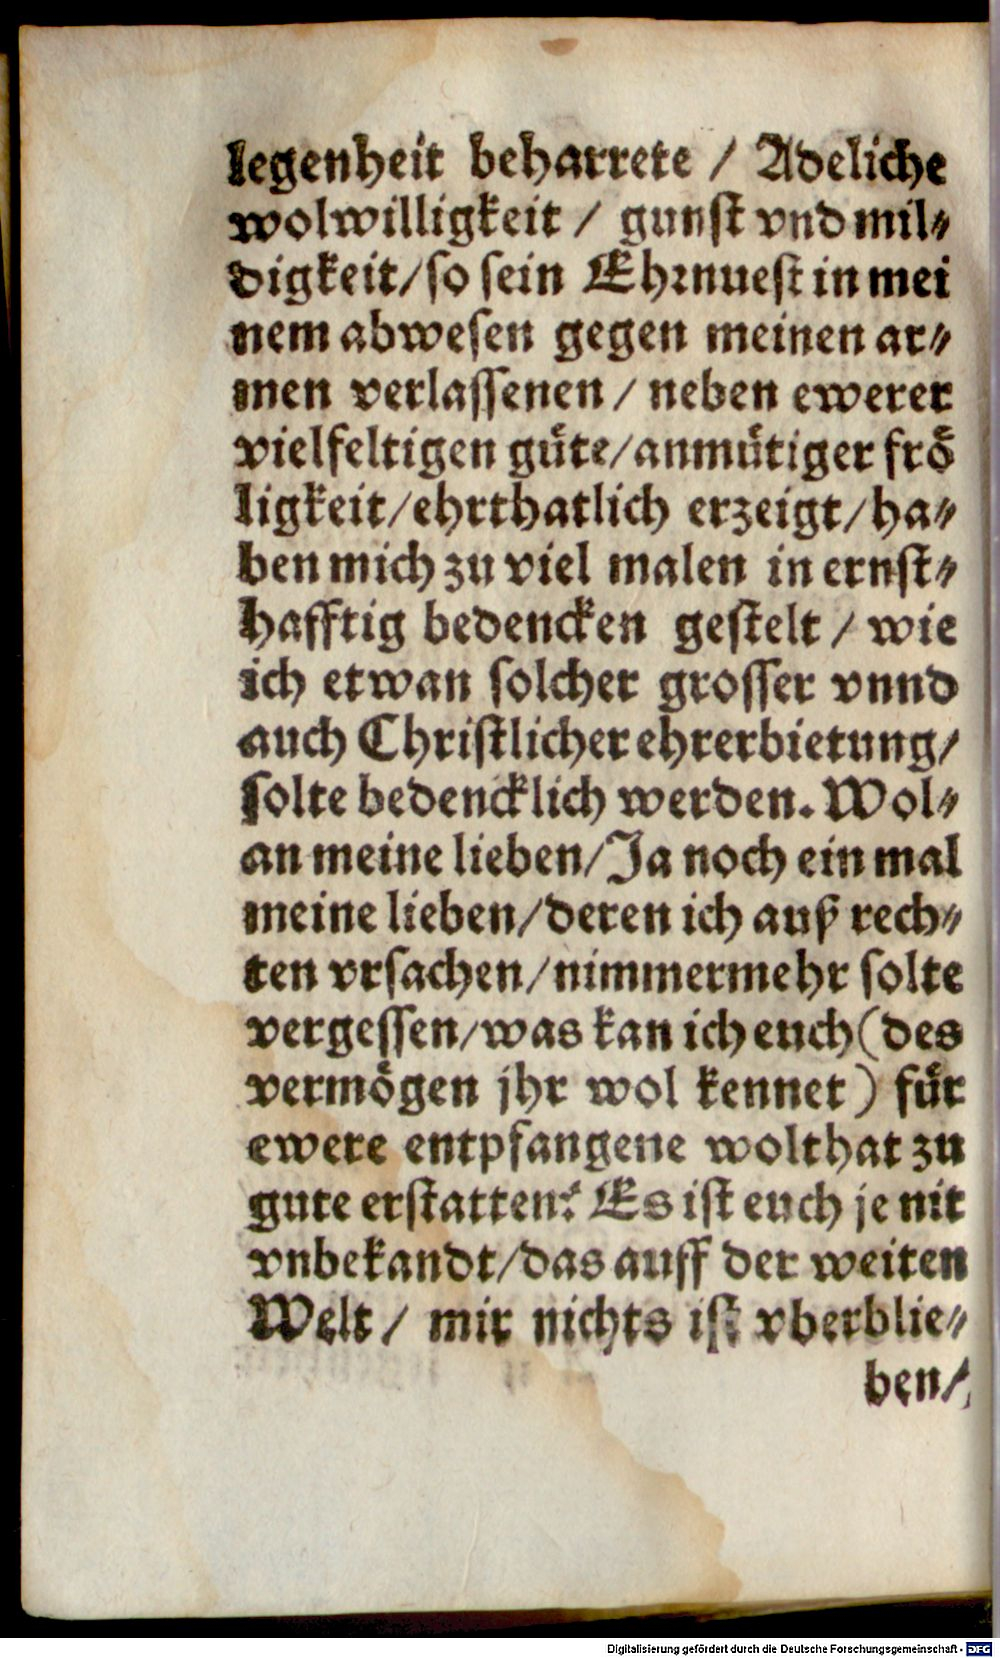 legenheit beharrete / Adeliche
wolwilligkeit / gunst vnd mil⸗
digkeit/so sein Ehrnuest in mei
nem abwesen gegen meinen ar⸗
men verlassenen / neben ewerer
vielfeltigen guͤte/anmuͤtiger froͤ
ligkeit/ehrthatlich erzeigt/ha⸗
ben mich zu viel malen in ernst⸗
hafftig bedencken gestelt / wie
ich etwan solcher grosser vnnd
auch Christlicher ehrerbietung/
solte bedencklich werden. Wol⸗
an meine lieben/Ja noch ein mal
meine lieben/deren ich auß rech⸗
ten vrsachen/nimmermehr solte
vergessen/was kan ich euch (des
vermoͤgen jhr wol kennet) fuͤr
ewere entpfangene wolthat zu
gute erstatten? Es ist euch je nit
vnbekandt/das auff der weiten
Welt / mir nichts ist vberblie⸗
ben/
Digitalisierung gefördert durch die Deutsche Forschungsgemeinschaft - DFG